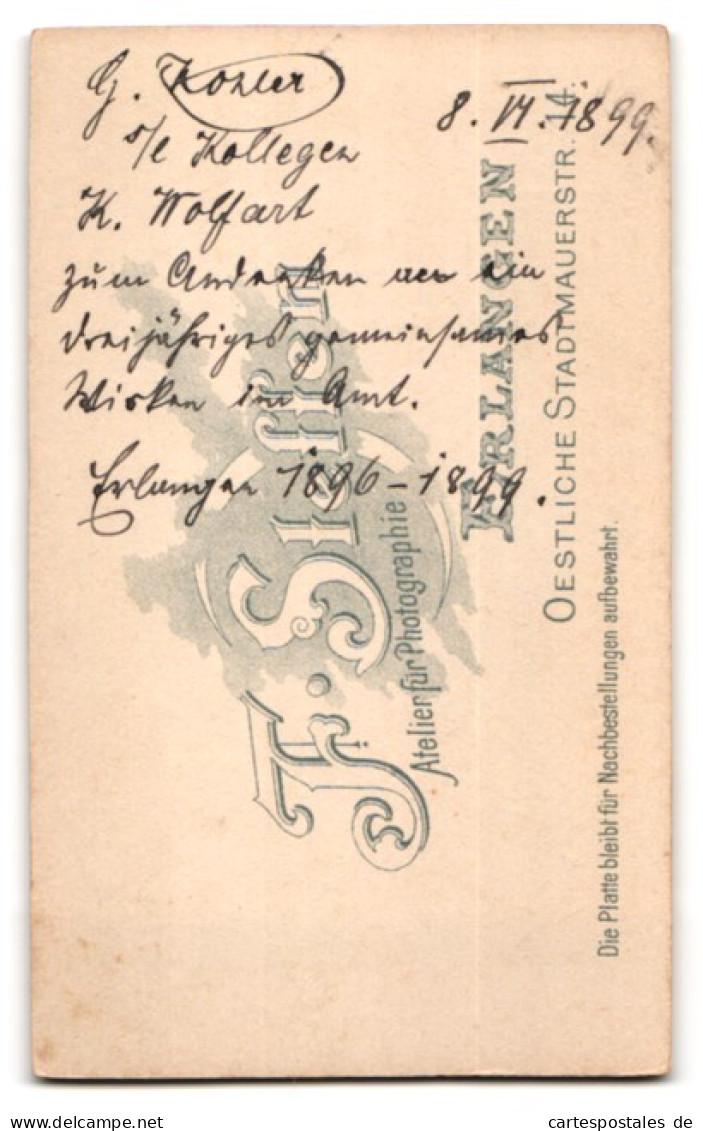 G. Kohler
8. VI. 1899.
s/l Kollegen
K. Wolfart
zum Andenken an ein
dreijähriges gemeinsames
Wirken im Amt.
Erlangen 1896–1899.
F. Steffen
Atelier für Photographie
ERLANGEN
OESTLICHE STADTMAUERSTR. 14.
Die Platte bleibt für Nachbestellungen aufbewahrt.
www.delcampe.net
cartespostales de